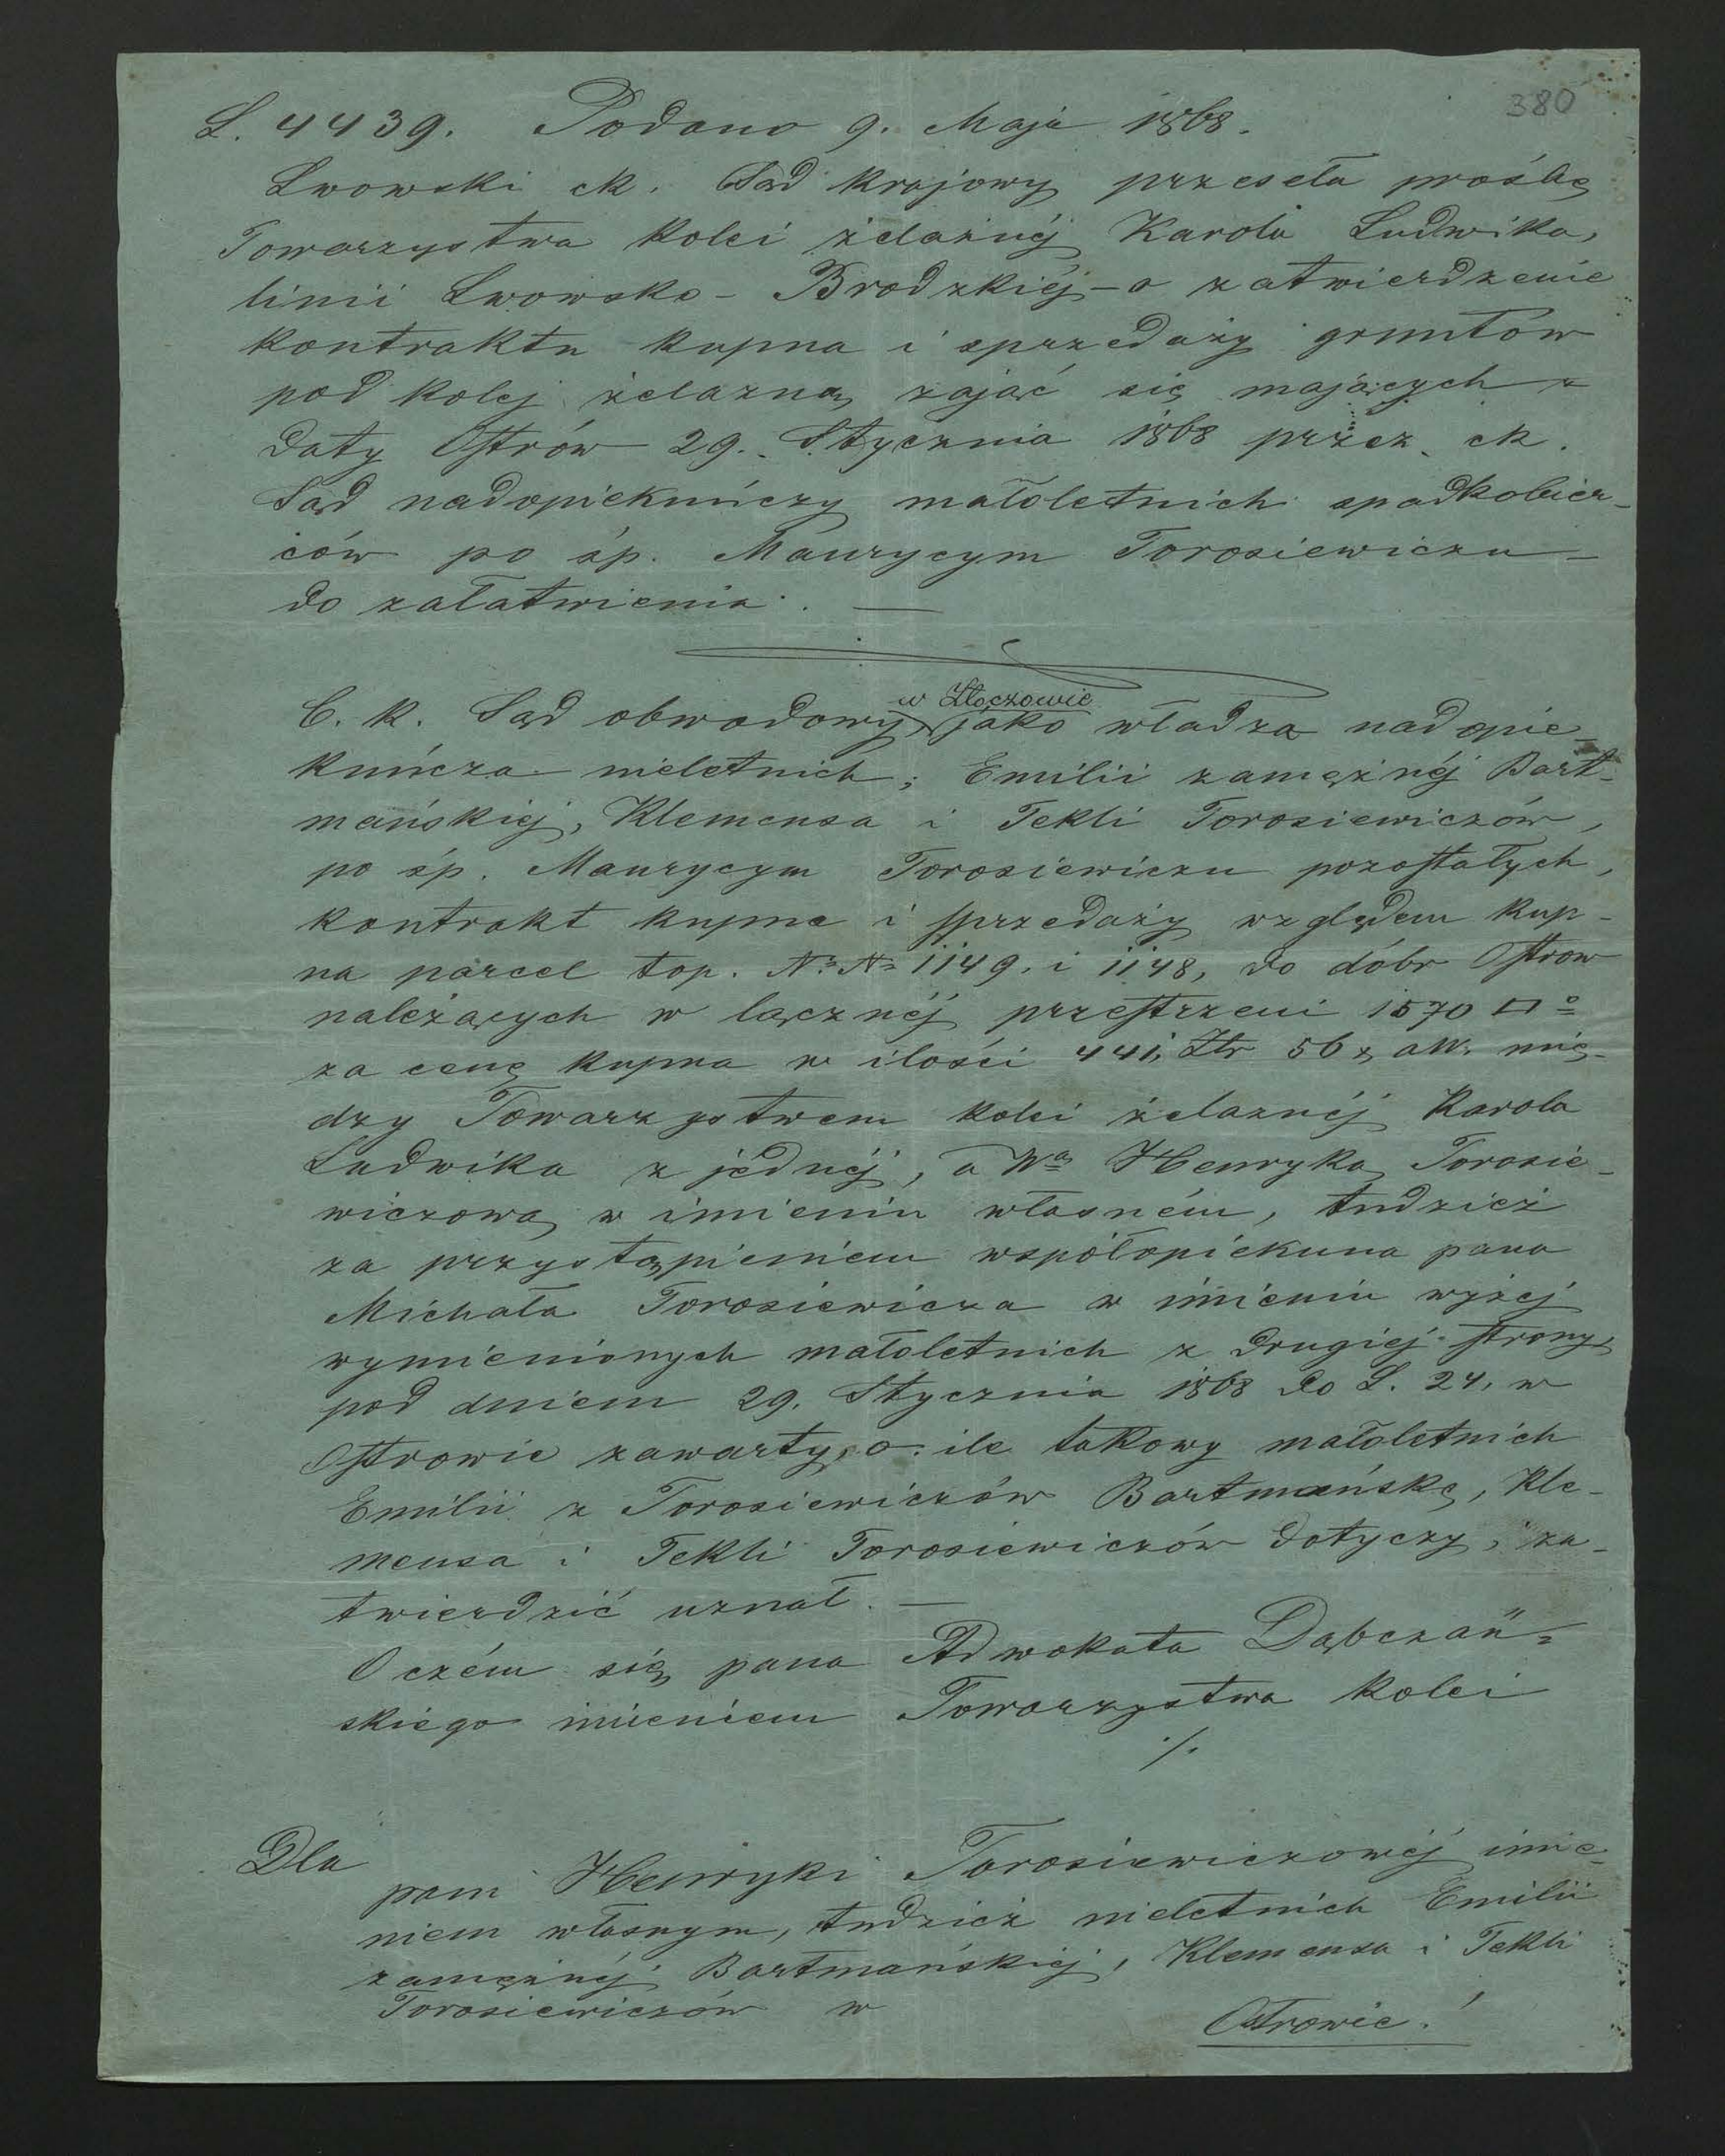 380
L. 4439. Podano 9. Maja 1868.
Lwowski ck. Sąd krajowy przeseła prośbę
Towarzystwa kolei żelaznéj Karola Ludwika,
linii Lwowsko - Brodzkiéj - o zatwierdzenie
kontraktu kupna i sprzedaży gruntów
pod kolej żelazną zająć się mających z
daty Ostrów 29. Stycznia 1868 przez ck.
Sąd nadopiekuńczy małoletnich spadkobier-
ców po śp. Maurycym Torosiewiczu -
do załatwienia. —
w Złoczowie
C. k. Sąd obwodowy, jako władza nadopie-
kuńcza nieletnich; Emilii zamężnéj Bart-
mańskiej, Klemensa i Tekli Torosiewiczów,
po śp. Maurycym Torosiewiczu pozostałych,
kontrakt kupna i sprzedaży względem kup-
na parcel top. No No 1149. i 1148, do dóbr Ostrow
należących w łącznéj przestrzeni 1570 □°
za cenę kupna w ilości 441, Złr 56 x, aW. mię-
dzy Towarzystwem kolei żelaznéj Karola
Ludwika z jednéj, a Wą Henryką Torosie-
wiczową w imieniu własném, tudzież
za przystąpieniem współopiekuna pana
Michała Torosiewicza w imieniu wyżej
wymienionych małoletnich z drugiej strony,
pod dniem 29. Stycznia 1868 do L. 24, w
Ostrowie zawarty, o ile takowy małoletnich
Emilii z Torosiewiczów Bartmańskę, Kle-
mensa i Tekli Torosiewiczów dotyczy, za-
twierdzić uznał. —
O czém się pana Adwokata Dąbczań-
skiego imieniem Towarzystwa kolei
./.
Dla
pani Henryki Torosiewiczowéj imie-
niem własnym, tudzież nieletnich Emilii
zamężnéj Bartmańskiéj, Klemensa i Tekli
Torosiewiczów w
Ostrowie!